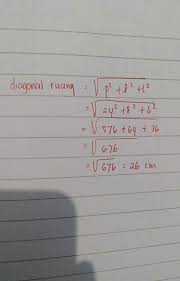 diagonal ruang = √p² + l² + t²
= √24² + 8² + 6²
= √576 + 64 + 36
= √676
= √676 = 26 cm